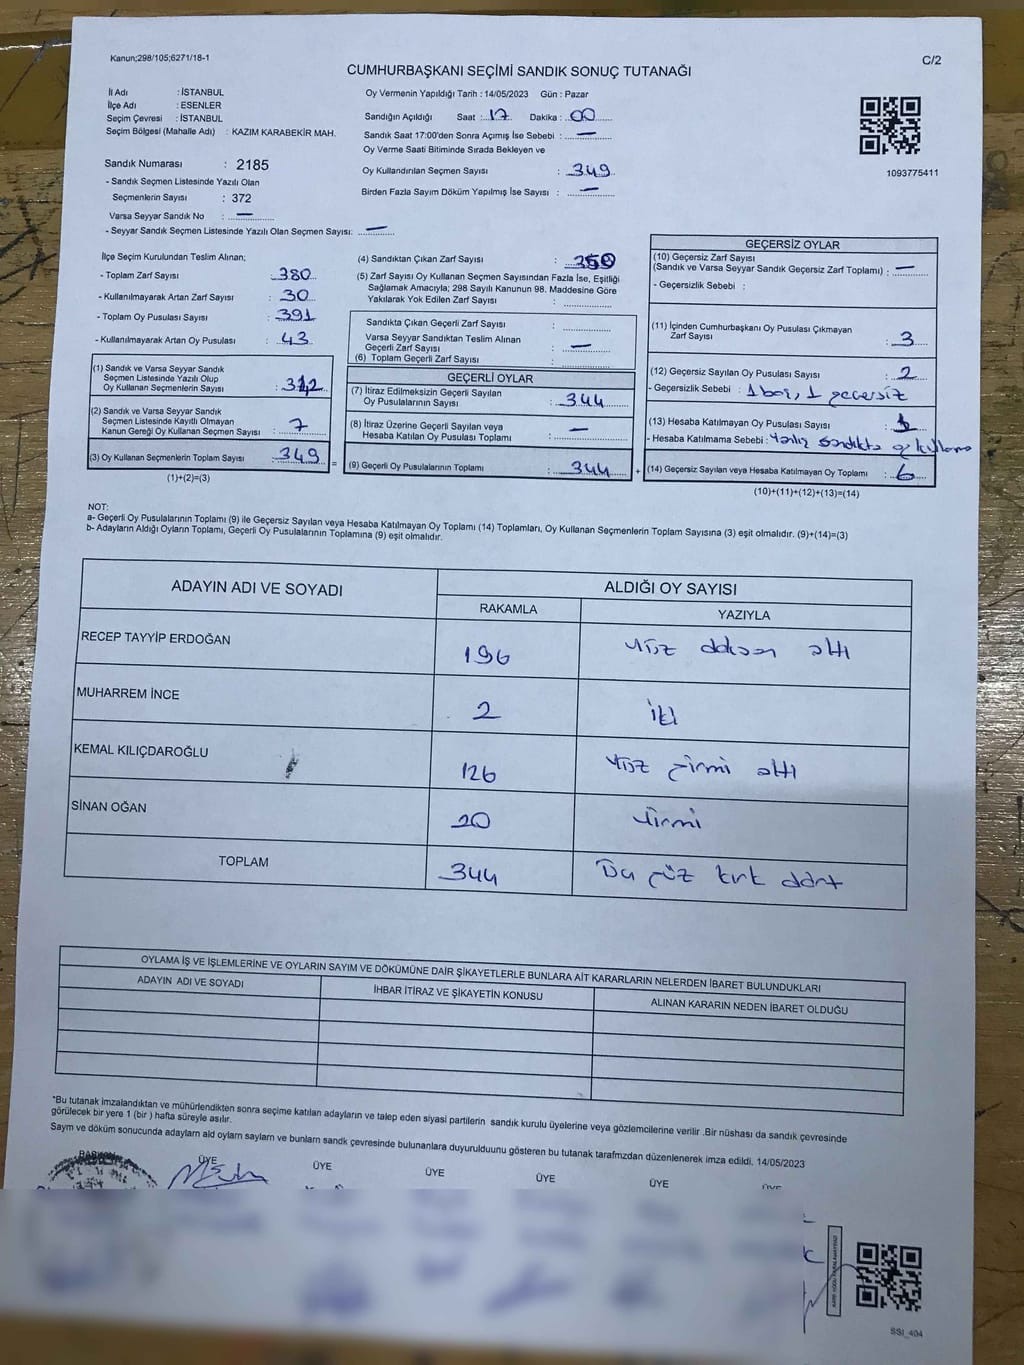 Kanun;298/105;6271/18-1
C/2
CUMHURBAŞKANI SEÇİMİ SANDIK SONUÇ TUTANAĞI
İl Adı : İSTANBUL
İlçe Adı : ESENLER
Seçim Çevresi : İSTANBUL
Seçim Bölgesi (Mahalle Adı) : KAZIM KARABEKİR MAH.
Sandık Numarası : 2185
- Sandık Seçmen Listesinde Yazılı Olan
Seçmenlerin Sayısı : 372
Varsa Seyyar Sandık No : —
- Seyyar Sandık Seçmen Listesinde Yazılı Olan Seçmen Sayısı: —
Oy Vermenin Yapıldığı Tarih : 14/05/2023 Gün : Pazar
Sandığın Açıldığı Saat : 17 Dakika : 00
Sandık Saat 17:00'den Sonra Açımış İse Sebebi : —
Oy Verme Saati Bitiminde Sırada Bekleyen ve
Oy Kullandırılan Seçmen Sayısı : 349
Birden Fazla Sayım Döküm Yapılmış İse Sayısı : —
1093775411
İlçe Seçim Kurulundan Teslim Alınan;
- Toplam Zarf Sayısı : 380
- Kullanılmayarak Artan Zarf Sayısı : 30
- Toplam Oy Pusulası Sayısı : 391
- Kullanılmayarak Artan Oy Pusulası : 43
(1) Sandık ve Varsa Seyyar Sandık
Seçmen Listesinde Yazılı Olup
Oy Kullanan Seçmenlerin Sayısı : 342
(2) Sandık ve Varsa Seyyar Sandık
Seçmen Listesinde Kayıtlı Olmayan
Kanun Gereği Oy Kullanan Seçmen Sayısı : 7
(3) Oy Kullanan Seçmenlerin Toplam Sayısı : 349 =
(1)+(2)=(3)
(4) Sandıktan Çıkan Zarf Sayısı : 350
(5) Zarf Sayısı Oy Kullanan Seçmen Sayısından Fazla İse, Eşitliği
Sağlamak Amacıyla; 298 Sayılı Kanunun 98. Maddesine Göre
Yakılarak Yok Edilen Zarf Sayısı :
Sandıkta Çıkan Geçerli Zarf Sayısı :
Varsa Seyyar Sandıktan Teslim Alınan
Geçerli Zarf Sayısı : —
(6) Toplam Geçerli Zarf Sayısı :
GEÇERLİ OYLAR
(7) İtiraz Edilmeksizin Geçerli Sayılan
Oy Pusulalarının Sayısı : 344
(8) İtiraz Üzerine Geçerli Sayılan veya
Hesaba Katılan Oy Pusulası Toplamı : —
(9) Geçerli Oy Pusulalarının Toplamı : 344 +
GEÇERSİZ OYLAR
(10) Geçersiz Zarf Sayısı
(Sandık ve Varsa Seyyar Sandık Geçersiz Zarf Toplamı) : —
- Geçersizlik Sebebi :
(11) İçinden Cumhurbaşkanı Oy Pusulası Çıkmayan
Zarf Sayısı : 3
(12) Geçersiz Sayılan Oy Pusulası Sayısı : 2
- Geçersizlik Sebebi : 1 boş, 1 geçersiz
(13) Hesaba Katılmayan Oy Pusulası Sayısı : 1
- Hesaba Katılmama Sebebi : Yanlış sandıkta oy kullanma
(14) Geçersiz Sayılan veya Hesaba Katılmayan Oy Toplamı : 6
(10)+(11)+(12)+(13)=(14)
NOT:
a- Geçerli Oy Pusulalarının Toplamı (9) ile Geçersiz Sayılan veya Hesaba Katılmayan Oy Toplamı (14) Toplamları, Oy Kullanan Seçmenlerin Toplam Sayısına (3) eşit olmalıdır. (9)+(14)=(3)
b- Adayların Aldığı Oyların Toplamı, Geçerli Oy Pusulalarının Toplamına (9) eşit olmalıdır.
ADAYIN ADI VE SOYADI
ALDIĞI OY SAYISI
RAKAMLA YAZIYLA
RECEP TAYYİP ERDOĞAN 196 Yüz doksan altı
MUHARREM İNCE 2 iki
KEMAL KILIÇDAROĞLU 126 Yüz yirmi altı
SİNAN OĞAN 20 Yirmi
TOPLAM 344 Üç yüz kırk dört
OYLAMA İŞ VE İŞLEMLERİNE VE OYLARIN SAYIM VE DÖKÜMÜNE DAİR ŞİKAYETLERLE BUNLARA AİT KARARLARIN NELERDEN İBARET BULUNDUKLARI
ADAYIN ADI VE SOYADI İHBAR İTİRAZ VE ŞİKAYETİN KONUSU ALINAN KARARIN NEDEN İBARET OLDUĞU
*Bu tutanak imzalandıktan ve mühürlendikten sonra seçime katılan adayların ve talep eden siyasi partilerin sandık kurulu üyelerine veya gözlemcilerine verilir .Bir nüshası da sandık çevresinde
görülecek bir yere 1 (bir ) hafta süreyle asılır.
Sayım ve döküm sonucunda adayların ald oyların sayları ve bunların sandk çevresinde bulunanlara duyurulduunu gösteren bu tutanak tarafmzdan düzenlenerek imza edildi. 14/05/2023
BAŞKAN ÜYE ÜYE ÜYE ÜYE ÜYE ÜYE
SSI_404